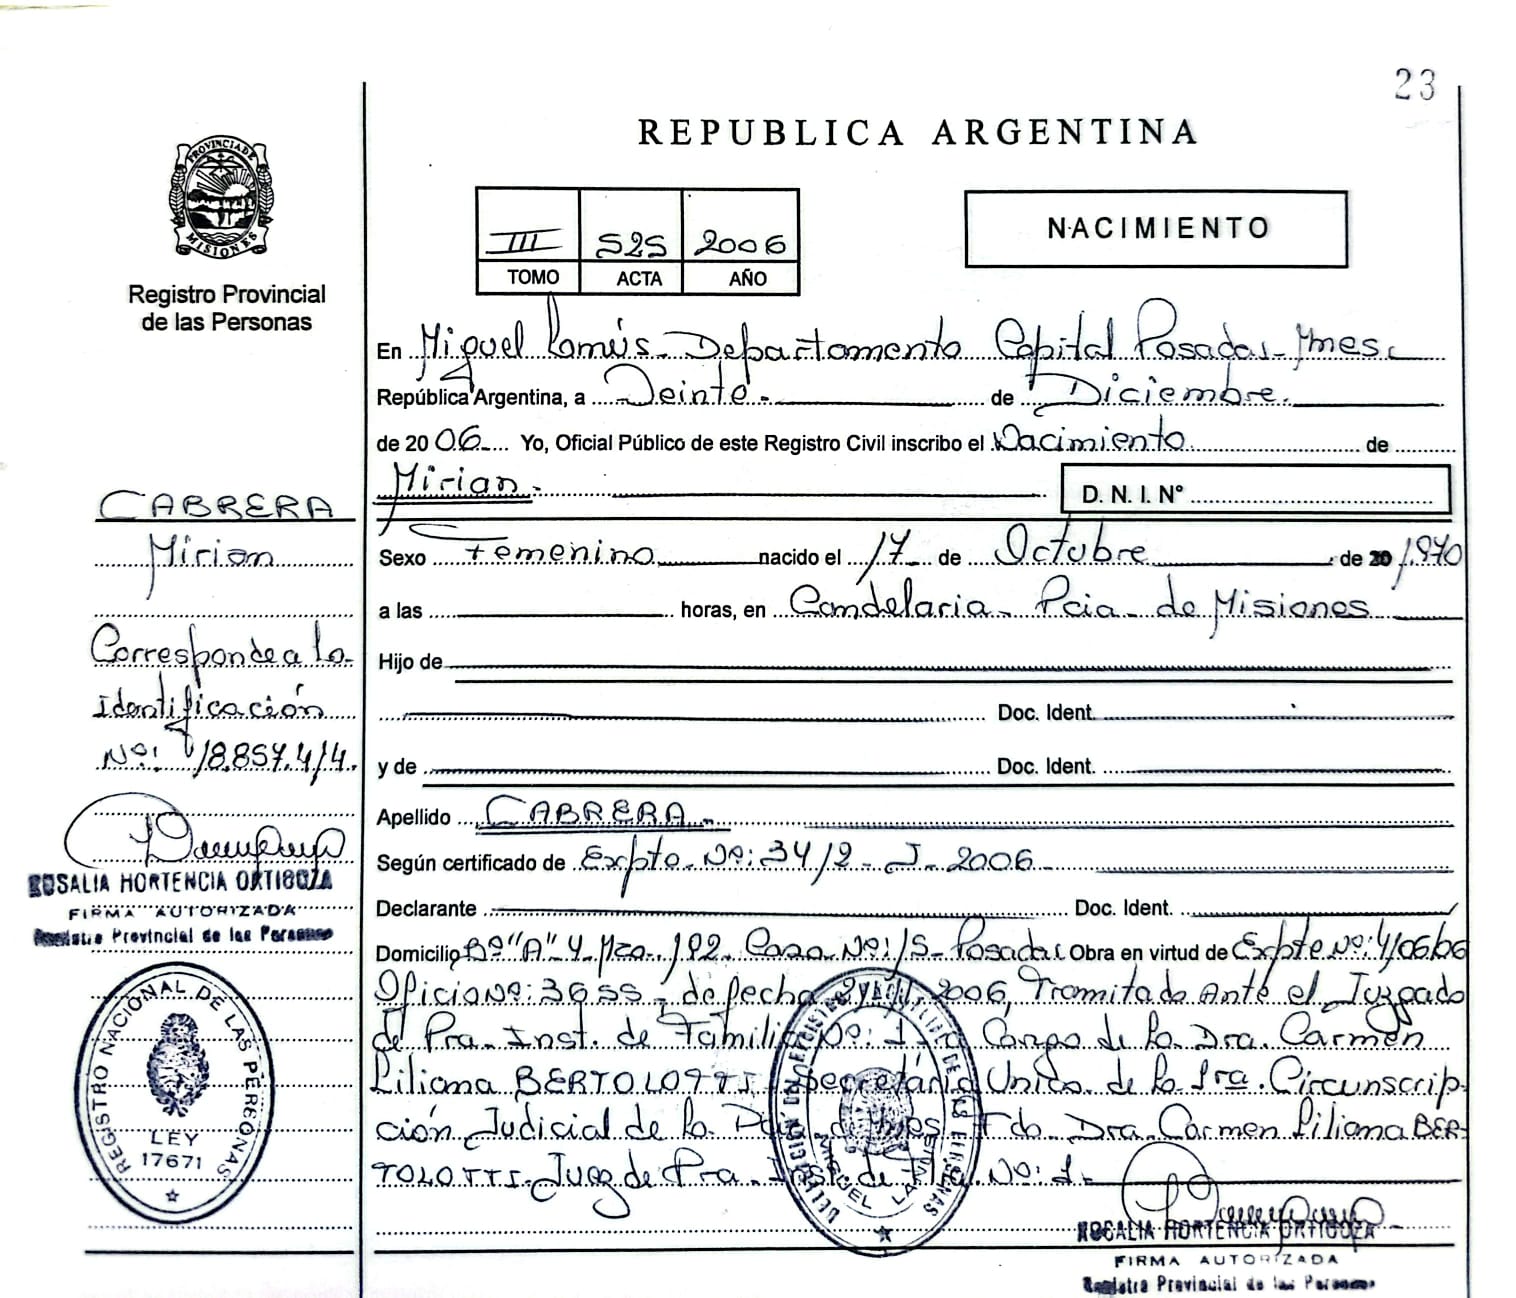 23
REPUBLICA ARGENTINA
PROVINCIA DE
MISIONES
Registro Provincial
de las Personas
III 525 2006
TOMO ACTA AÑO
NACIMIENTO
En Miguel Lanús - Departamento Capital Posadas - Mnes.
República Argentina, a Veinte - de Diciembre
de 2006 Yo, Oficial Público de este Registro Civil inscribo el Nacimiento de
Mirian - D. N. I. Nº
Sexo Femenino nacido el 17 de Octubre de 20 1.970
a las horas, en Candelaria - Pcia - de Misiones
Hijo de
Doc. Ident.
y de Doc. Ident.
Apellido CABRERA -
Según certificado de Expte. Nº: 3412 - J - 2006
Declarante Doc. Ident.
Domicilio Bº "A" 4. Mza. 192. Casa Nº: 15 - Posadas Obra en virtud de Expte Nº:
Oficio Nº: 3655 - de fecha 2006, Tramitado Ante el Juzgado
de Pra. Inst. de Familia Nº: 1 a Cargo de la Dra. Carmen
Liliana BERTOLOTTI - Secretaría Única de la 1ra. Circunscrip-
ción Judicial de la Pcia. de Mnes Fdo. Dra. Carmen Liliana BER-
TOLOTTI - Juez de Pra. Inst. de Flia. Nº: 1 -
CABRERA
Mirian
Corresponde a la
Identificación
Nº: 18.857.414.
ROSALIA HORTENCIA ORTIGOZA
FIRMA AUTORIZADA
Registro Provincial de las Personas
REGISTRO NACIONAL DE LAS PERSONAS
LEY
17671
MIGUEL LANUS
ROSALIA HORTENCIA ORTIGOZA
FIRMA AUTORIZADA
Registro Provincial de las Personas